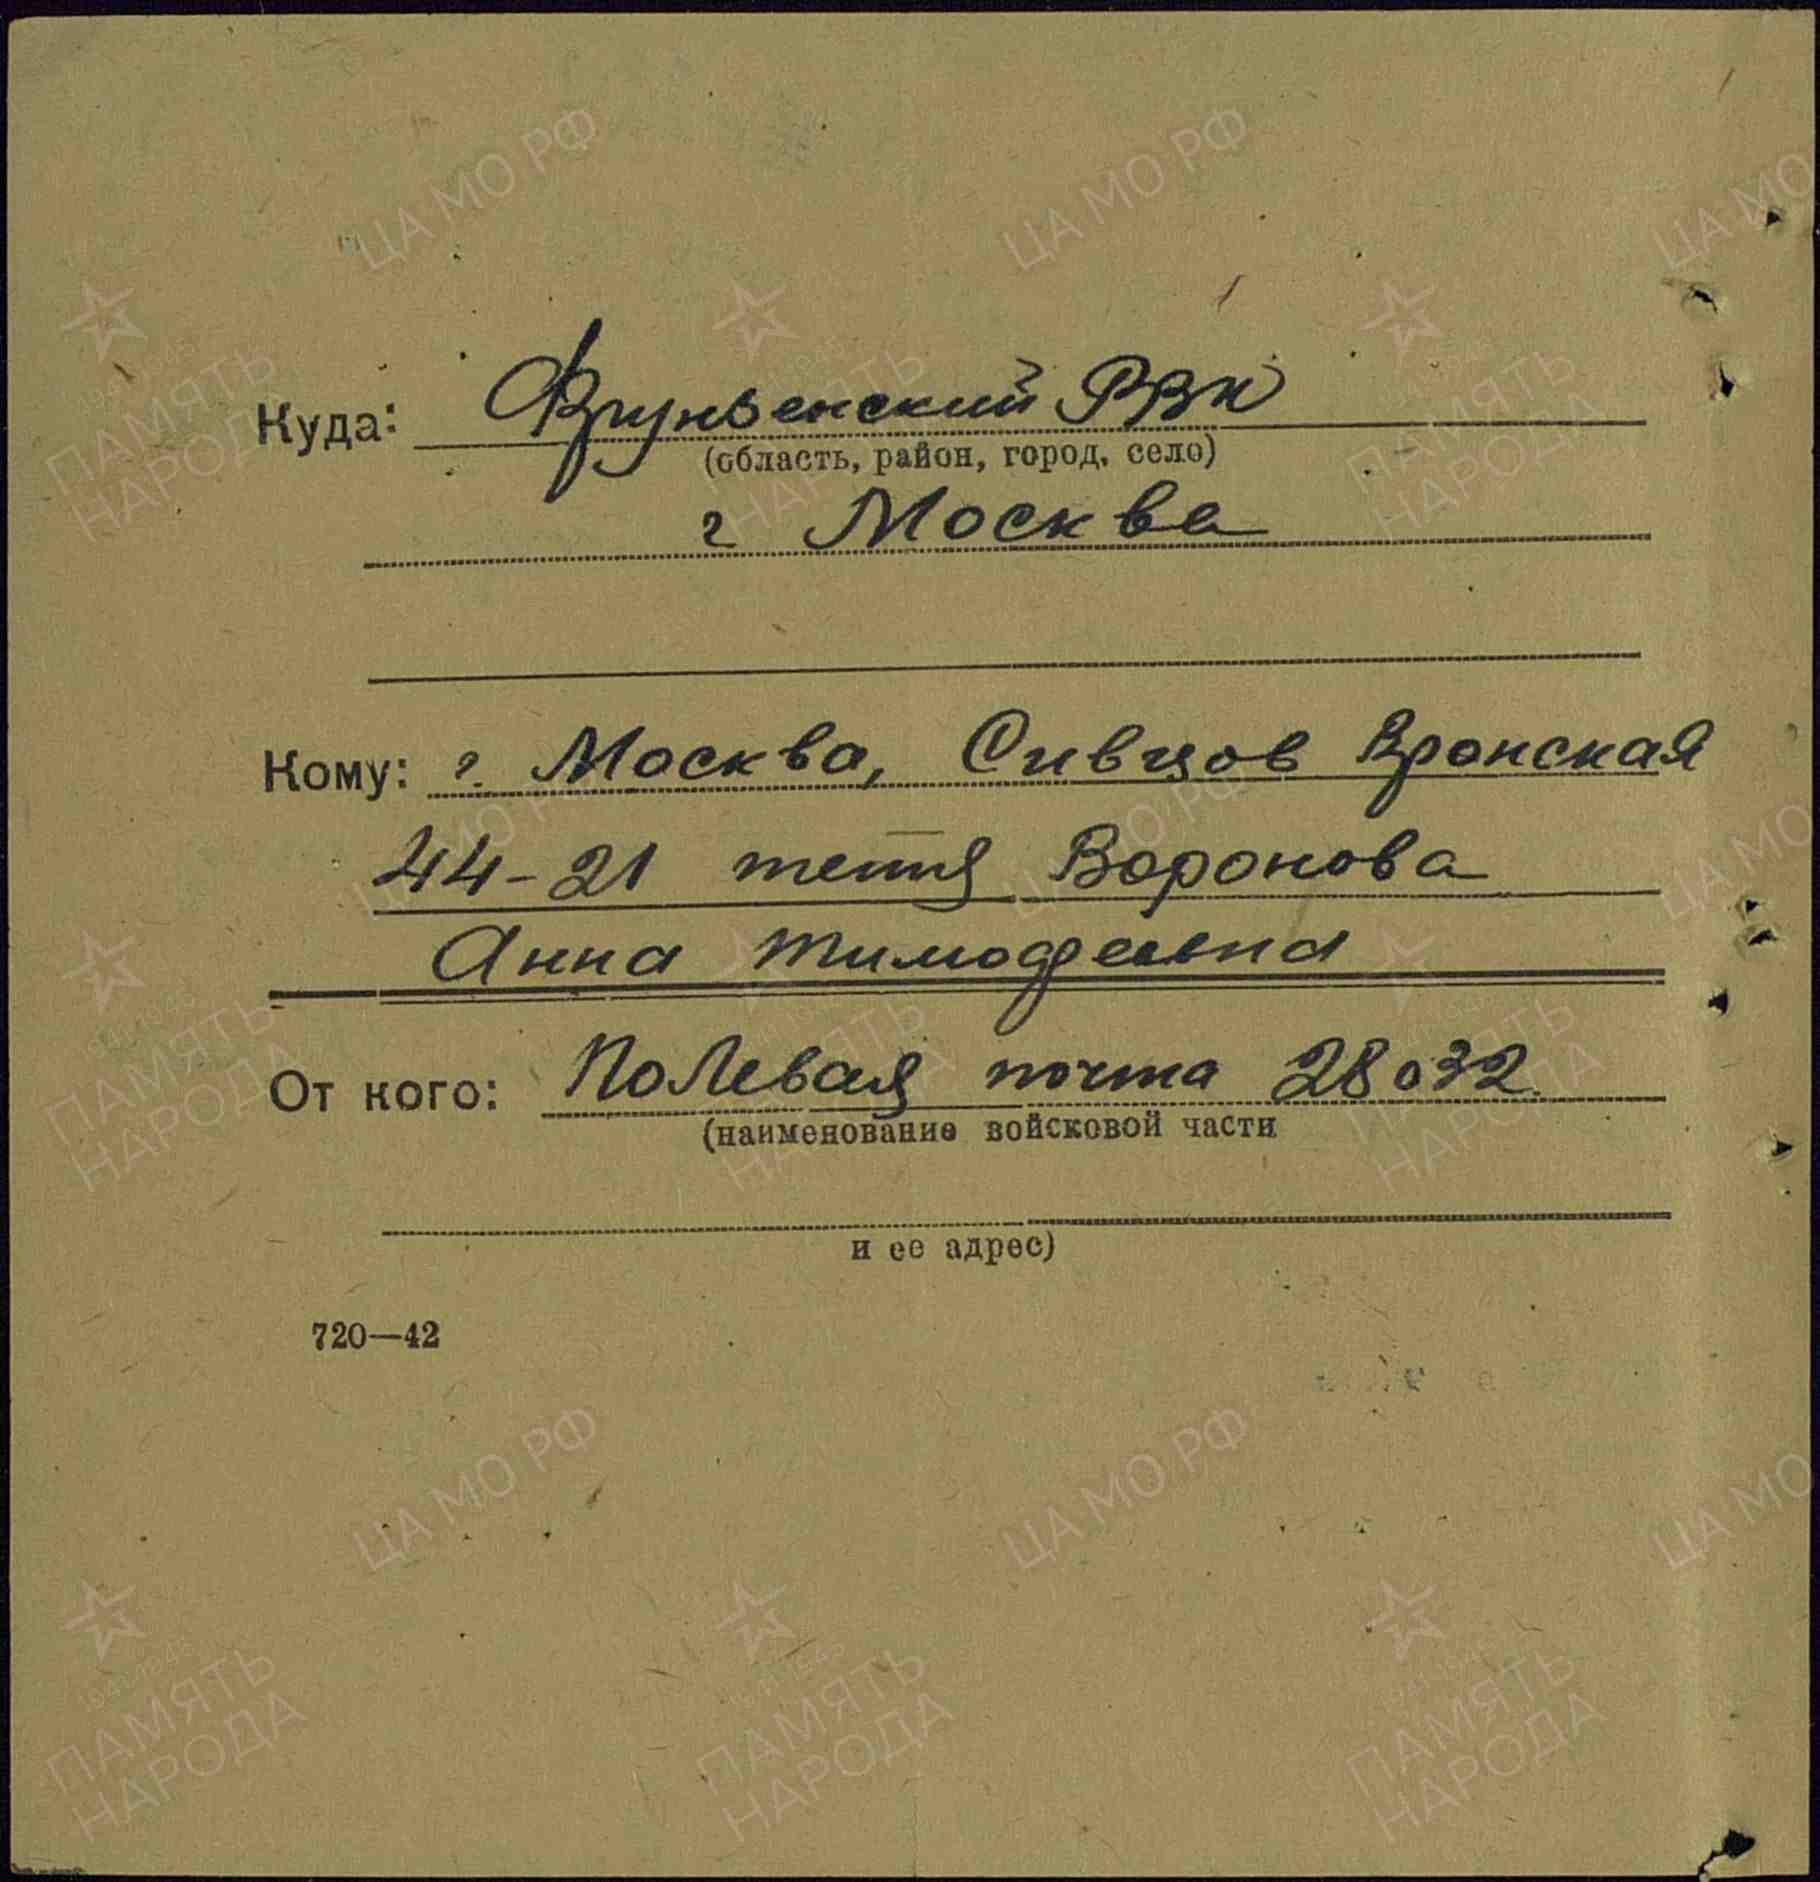 Куда: Фрунзенский РВК
(область, район, город, село)
г Москва
Кому: г. Москва, Сивцов Вронская
44-21 тетя Воронова
Анна Тимофеевна
От кого: Полевая почта 28032.
(наименование войсковой части
и ее адрес)
720—42
ЦА МО РФ
1941-1945
ПАМЯТЬ
НАРОДА